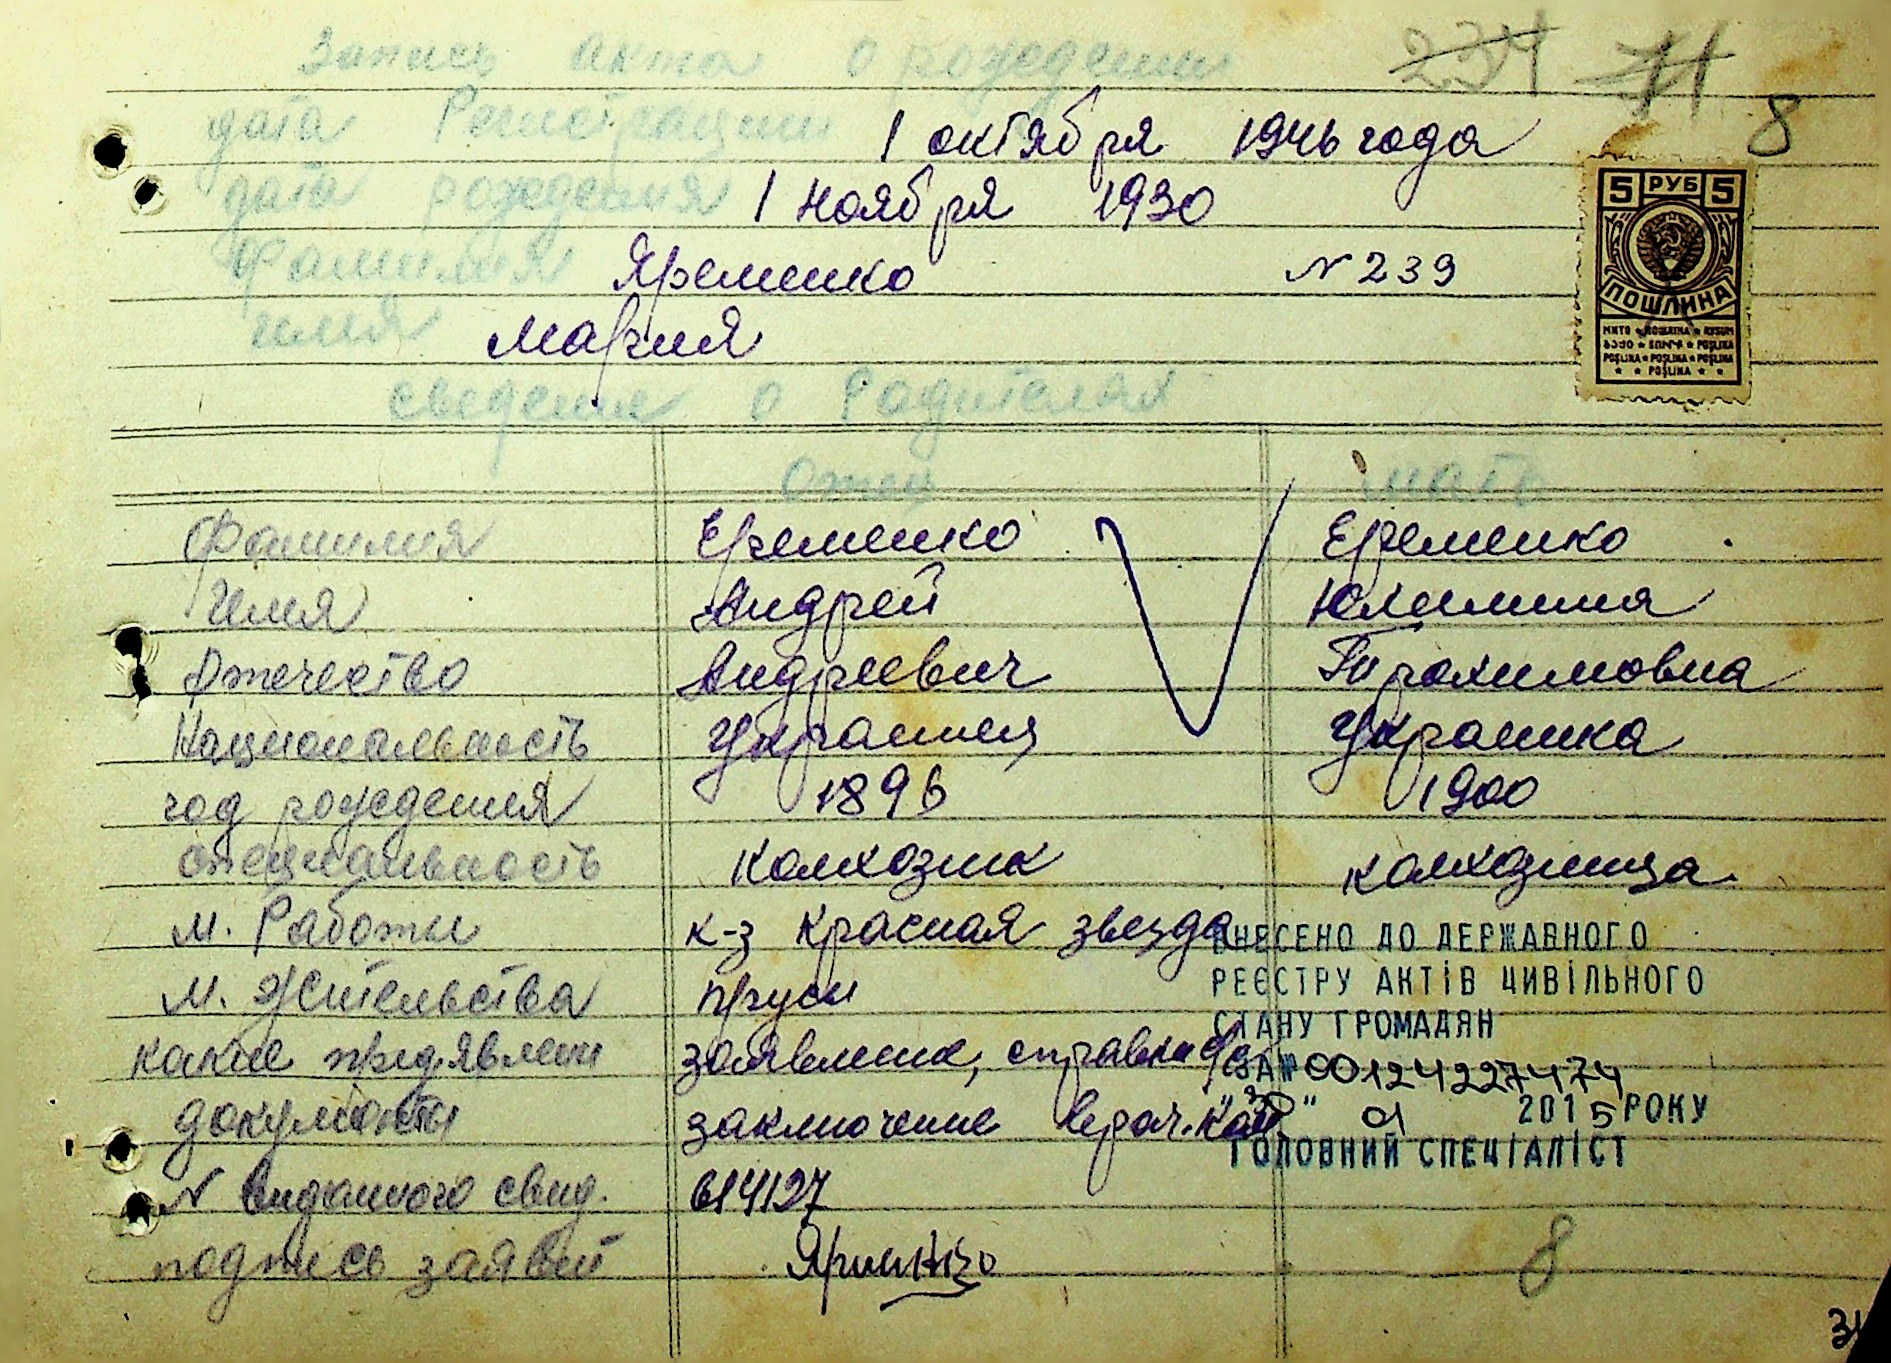 Запись акта о рождении
234 11
дата Регистрации 1 октября 1946 года
8
дата рождения 1 ноября 1930
фамилия Яременко N 239
имя Мария
5 РУБ 5
ПОШЛИНА
сведения о Родителях
Отец мать
Фамилия Еременко Еременко
Имя Андрей
Отечество Андреевич Трохимовна
Национальность Украинец Украинка
год рождения 1896 1900
специальность колхозник колхозница
м. Работы к-з Красная звезда
м. Жительства Пруси
какие предявлены заявление, справка
документы заключение Врач. Ком
N выданного свид. 614127
подпись заявит
ВНЕСЕНО ДО ДЕРЖАВНОГО
РЕЄСТРУ АКТІВ ЦИВІЛЬНОГО
СТАНУ ГРОМАДЯН
ЗА № 00124227474
"30" 01 2015 РОКУ
ГОЛОВНИЙ СПЕЦІАЛІСТ
8